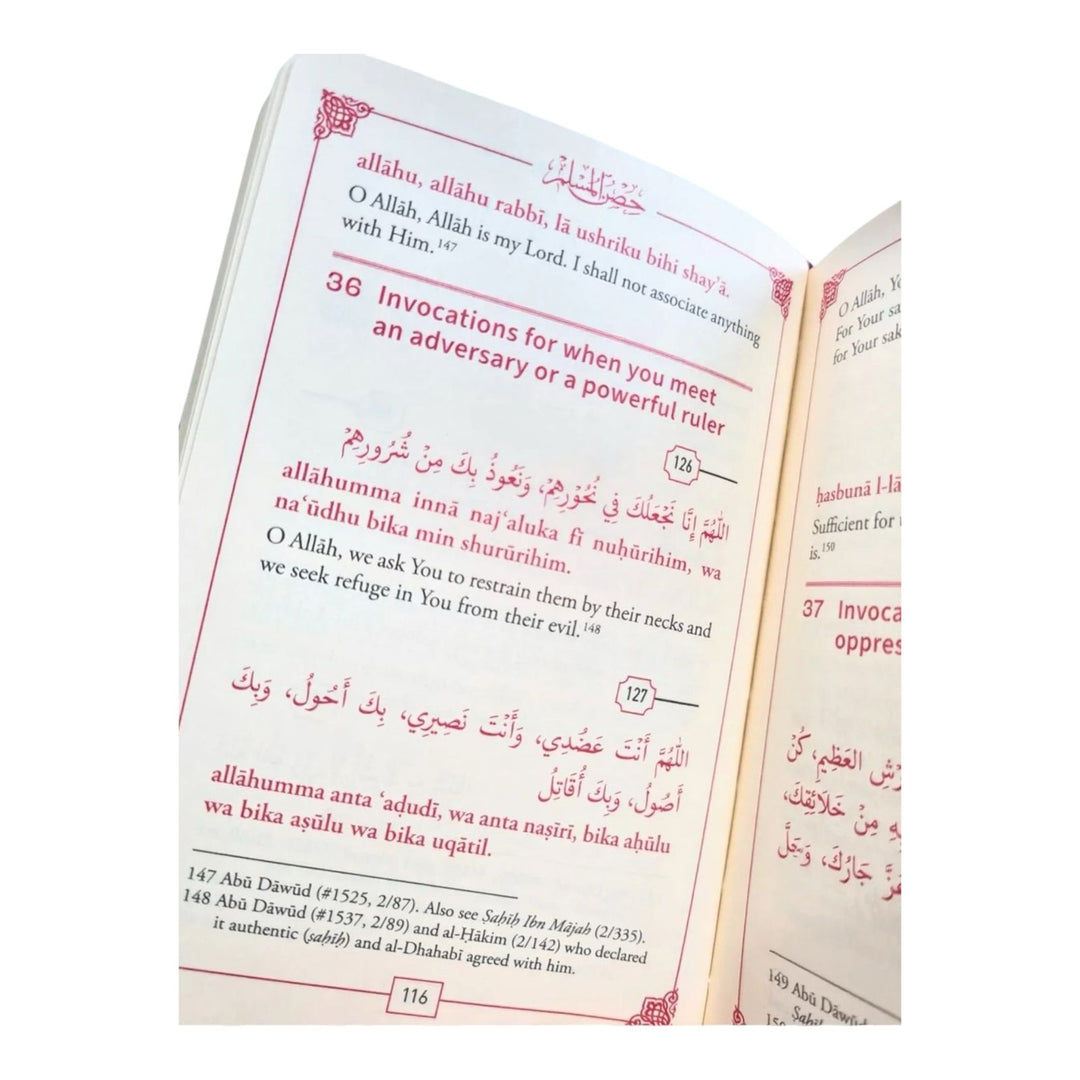 حصن المسلم
allāhu, allāhu rabbī, lā ushriku bihi shay’ā.
O Allāh, Allāh is my Lord. I shall not associate anything
with Him.147
36 Invocations for when you meet
an adversary or a powerful ruler
126
اللّٰهُمَّ إِنَّا نَجْعَلُكَ فِي نُحُورِهِمْ، وَنَعُوذُ بِكَ مِنْ شُرُورِهِمْ
allāhumma innā naj‘aluka fī nuḥūrihim, wa
na‘ūdhu bika min shurūrihim.
O Allāh, we ask You to restrain them by their necks and
we seek refuge in You from their evil.148
127
اللّٰهُمَّ أَنْتَ عَضُدِي، وَأَنْتَ نَصِيرِي، بِكَ أَحُولُ، وَبِكَ
أَصُولُ، وَبِكَ أُقَاتِلُ
allāhumma anta ‘aḍudī, wa anta naṣīrī, bika aḥūlu
wa bika aṣūlu wa bika uqātil.
147 Abū Dāwūd (#1525, 2/87). Also see Ṣaḥīḥ Ibn Mājah (2/335).
148 Abū Dāwūd (#1537, 2/89) and al-Ḥākim (2/142) who declared
it authentic (ṣaḥīḥ) and al-Dhahabī agreed with him.
116
O Allāh,
For Your
for Your
ḥasbunā
Sufficient for
is.150
37
العَظِيمِ، كُنْ
مِنْ خَلَائِقِكَ،
جَارُكَ، وَجَلَّ
149 Abū Dāwūd